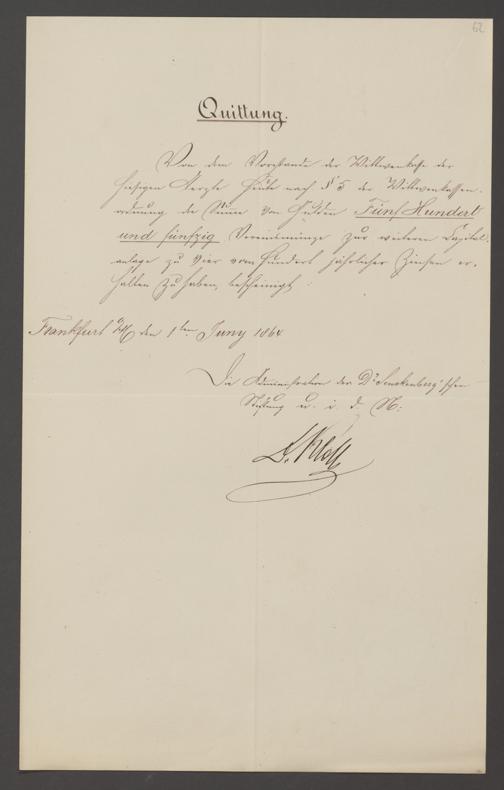 62
Quittung.
Von dem Vorstande der Wittwenkasse der
hiesigen Aerzte heute nach § 5 der Wittwenkassen-
ordnung die Summe von Gulden Fünf Hundert
und fünfzig Vereinsmünze zur weiteren Capital-
anlage zu vier vom Hundert jährlicher Zinsen er-
halten zu haben, bescheinigt
Frankfurt a/M den 1ten Juny 1864
Die Administration der Dr Senckenberg'schen
Stiftung u. i. d. N: